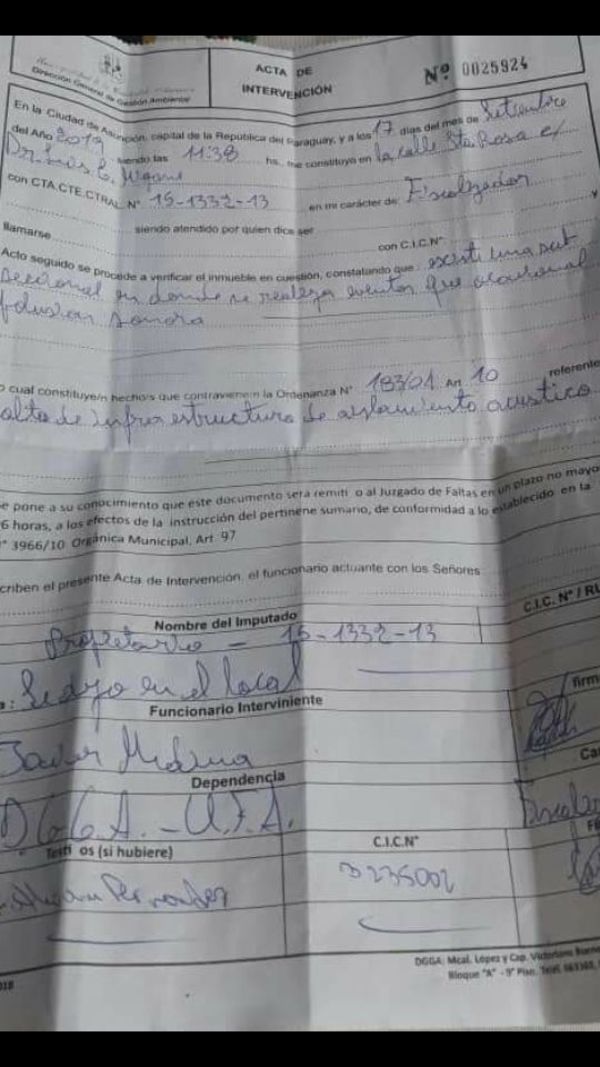 Dirección General de Gestión Ambiental
ACTA DE
INTERVENCIÓN
Nº 0025924
En la Ciudad de Asunción, capital de la República del Paraguay, y a los 17 días del mes de Setiembre
del Año 2019 siendo las 11:38 hs., me constituyo en la calle Sta. Rosa e/
Dr. Luis C.
con CTA.CTE.CTRAL Nº 15-1332-13 en mi carácter de: Fiscalizador
llamarse siendo atendido por quien dice ser y
con C.I.C.Nº
Acto seguido se procede a verificar el inmueble en cuestión, constatando que: existe una sub
seccional en donde se realiza eventos que ocasiona
polusion sonora
o cual constituye/n hecho/s que contraviene/n la Ordenanza Nº 183/01 Art 10 referente
alta de infraestructura de aislamiento acustico
e pone a su conocimiento que este documento será remiti o al Juzgado de Faltas en un plazo no mayo
6 horas, a los efectos de la instrucción del pertinene sumario, de conformidad a lo establecido en la
º 3966/10 Orgánica Municipal, Art 97
criben el presente Acta de Intervención, el funcionario actuante con los Señores
Nombre del Imputado
C.I.C. Nº / RU
Propietario - 15-1332-13
a: Se dejo en el local
Funcionario Interviniente
firm
Javier Medina
Dependencia
Ca
D.G.G.A. - U.F.A.
Testi os (si hubiere)
C.I.C.Nº
Fi
Fernandez
3235002
DGGA: Mcal. López y Cap.
Bloque "A" - 9º Piso.
018